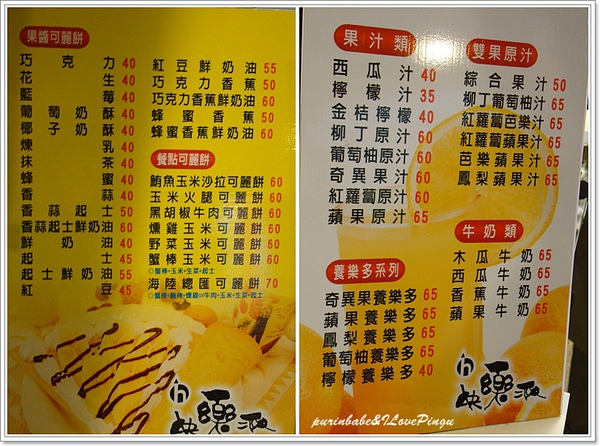 果醬可麗餅
巧克力 40
花生 40
藍莓 40
葡萄奶酥 40
椰子奶酥 40
煉乳 40
抹茶 40
蜂蜜 40
香蒜 40
香蒜起士 50
香蒜起士鮮奶油 60
鮮奶油 40
起士 45
起士鮮奶油 55
紅豆 45
紅豆鮮奶油 55
巧克力香蕉 50
巧克力香蕉鮮奶油 60
蜂蜜香蕉 50
蜂蜜香蕉鮮奶油 60
餐點可麗餅
鮪魚玉米沙拉可麗餅 60
玉米火腿可麗餅 60
黑胡椒牛肉可麗餅 60
燻雞玉米可麗餅 60
野菜玉米可麗餅 60
蟹棒玉米可麗餅 60
◎蟹棒+玉米+生菜+起士
海陸總匯可麗餅 70
◎蟹棒+鮪魚+燻雞or牛肉+玉米+生菜+起士
快樂派
果汁類
西瓜汁 40
檸檬汁 35
金桔檸檬 40
柳丁原汁 60
葡萄柚原汁 60
奇異果汁 60
紅蘿蔔原汁 60
蘋果原汁 65
養樂多系列
奇異果養樂多 65
蘋果養樂多 65
鳳梨養樂多 65
葡萄柚養樂多 65
檸檬養樂多 40
雙果原汁
綜合果汁 50
柳丁葡萄柚汁 65
紅蘿蔔芭樂汁 65
紅蘿蔔蘋果汁 65
芭樂蘋果汁 65
鳳梨蘋果汁 65
牛奶類
木瓜牛奶 65
西瓜牛奶 65
香蕉牛奶 65
蘋果牛奶 65
快樂派
purinbabe&ILovePingu